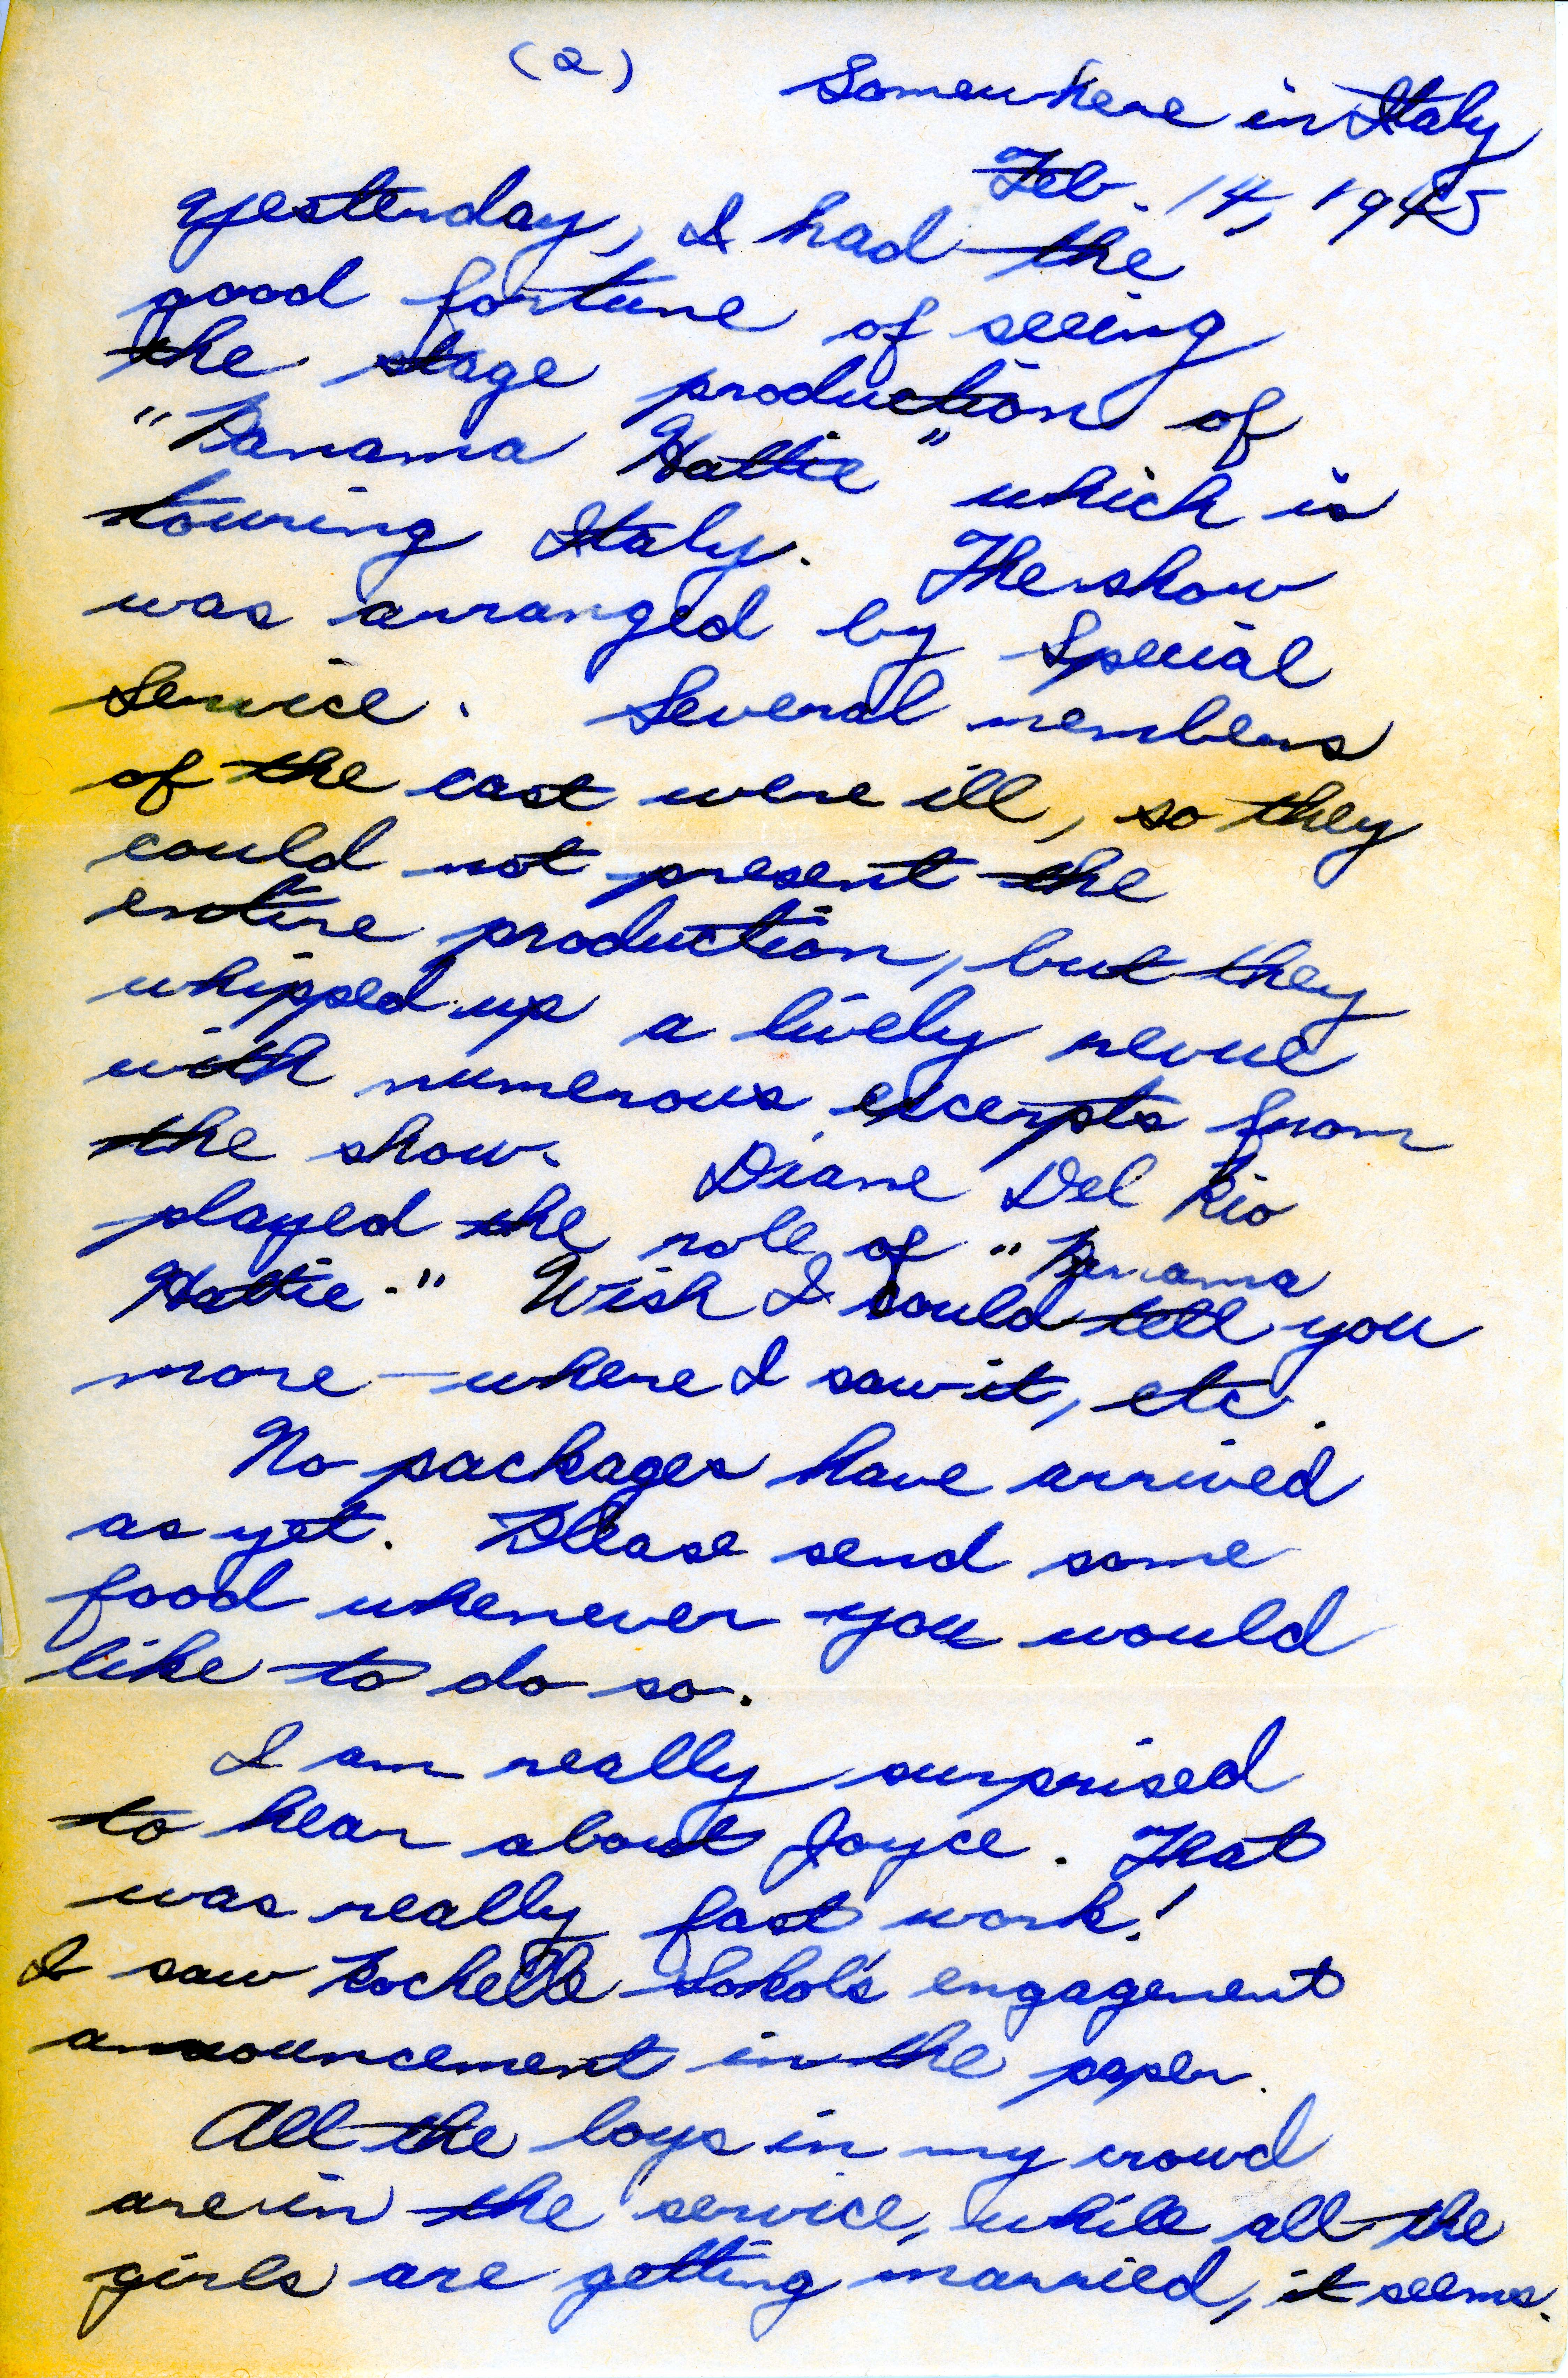 (2)
Somewhere in Italy
Feb. 14, 1945
Yesterday, I had the
good fortune of seeing
the stage production of
"Panama Hattie" which is
touring Italy. The show
was arranged by Special
Service. Several members
of the cast were ill, so they
could not present the
entire production, but they
whipped up a lively revue
with numerous excerpts from
the show. Diane Del Rio
played the role of "Panama
Hattie." Wish I could tell you
more — where I saw it, etc.
No packages have arrived
as yet. Please send some
food whenever you would
like to do so.
I am really surprised
to hear about Joyce. That
was really fast work!
I saw Rochelle Sokol's engagement
announcement in the paper.
All the boys in my crowd
are in the service, while all the
girls are getting married, it seems.